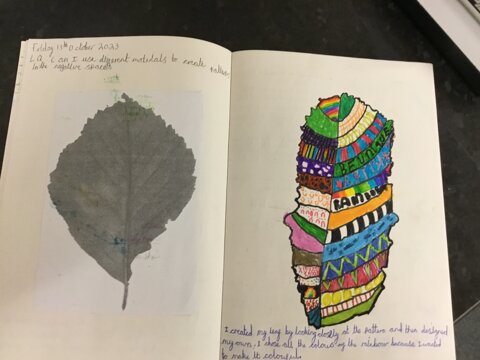 Friday 13th October 2023
LQ Can I use different materials to create pattern
in the negative spaces
I created my leaf by looking closely at the pattern and then designed
my own, I chose all the colours of the rainbow because I wanted
to make it colourful.